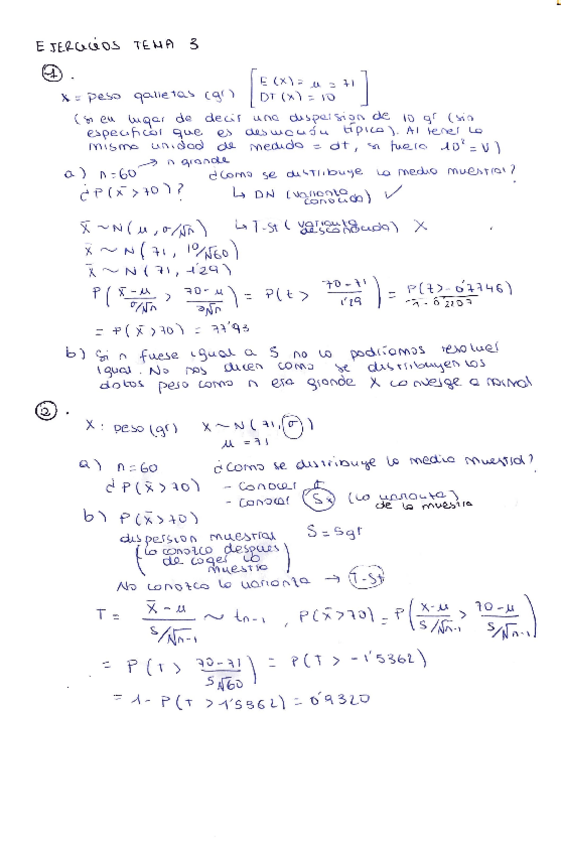 EJERCICIOS TEMA 3
1.
X = peso galletas (gr) [E(X) = μ = 71
DT(X) = 10]
(si en lugar de decir una dispersion de 10 gr (sin
especificar que es desviación típica). Al tener la
misma unidad de medida = dt, si fuera 10² = V)
a) n=60 → n grande ¿Como se distribuye la media muestral?
¿P(x̄ > 70)? ↳ DN (varianza conocida) ✓
x̄ ~ N(μ, σ/√n) ↳ T-St (varianza desconocida) X
x̄ ~ N(71, 10/√60)
x̄ ~ N(71, 1'29)
P(x̄-μ / σ/√n > 70-μ / σ/√n) = P(t > 70-71 / 1'29) = P(t > -0'7746)
= P(x̄ > 70) = 77'93
b) Si n fuese igual a 5 no lo podríamos resolver
igual. No nos dicen como se distribuyen los
datos pero como n era grande X converge a normal
2.
X: peso (gr) X ~ N(71, σ)
μ = 71
a) n=60 ¿Como se distribuye la media muestral?
¿P(x̄ > 70) - conocer
- conocer Sx (la varianza)
de la muestra
b) P(x̄ > 70)
dispersion muestral S = 5gr
(la conozco despues
de coger la
muestra)
No conozco la varianza → T-St
T = x̄-μ / S/√n-1 ~ tn-1, P(x̄ > 70) = P(x-μ / S/√n-1 > 70-μ / S/√n-1)
= P(T > 70-71 / 5√60) = P(T > -1'5362)
= 1- P(T > 1'5362) = 0'9320